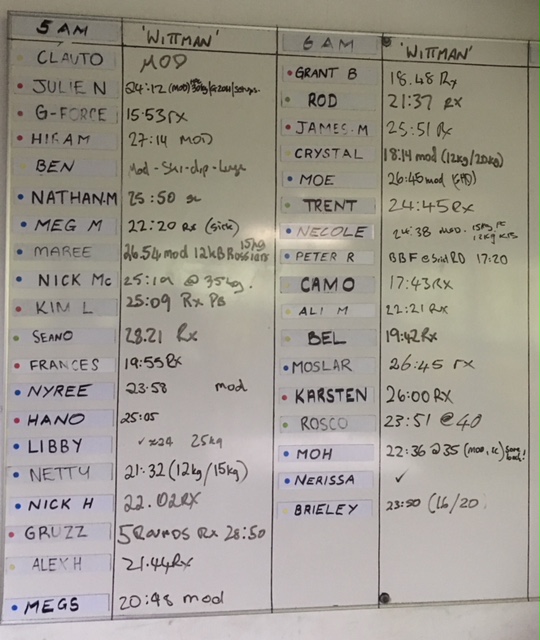 5 AM 'WITTMAN'
CLAUTO MOD
JULIE N 24:12 (mod)
G-FORCE 15.53 rx
HIRAM 27:14 MOD
BEN Mod - Ski - dip -
NATHAN.M 25:50
MEG M 22:20 Rx (sick)
MAREE 26.54 mod 12kB Russians 15kg
NICK Mc 25:19 @ 35kg.
KIM L 25:09 Rx PB
SEANO 28.21 Rx
FRANCES 19:55 Rx
NYREE 23:58 mod
HANO 25:05
LIBBY ✓ 25kg
NETTY 21:32 (12kg/15kg)
NICK H 22.02 RX
GRUZZ 5 Rounds Rx 28:50
ALEX H 21.44 Rx
MEGS 20:48 mod
6 AM 'WITTMAN'
GRANT B 18.48 Rx
ROD 21:37 Rx
JAMES.M 25:51 Rx
CRYSTAL 18:14 mod (12kg/20kg)
MOE 26:40 mod
TRENT 24:45 Rx
NECOLE 24:38 mod. 15kg PC 12kg KBS
PETER R BBF 17:20
CAMO 17:43 RX
ALI M 22:21 Rx
BEL 19:42 Rx
MOSLAR 26:45 rx
KARSTEN 26:00 RX
ROSCO 23:51 @ 40
MOH 22:36 @35
NERISSA ✓
BRIELEY 23:50 (16/20)